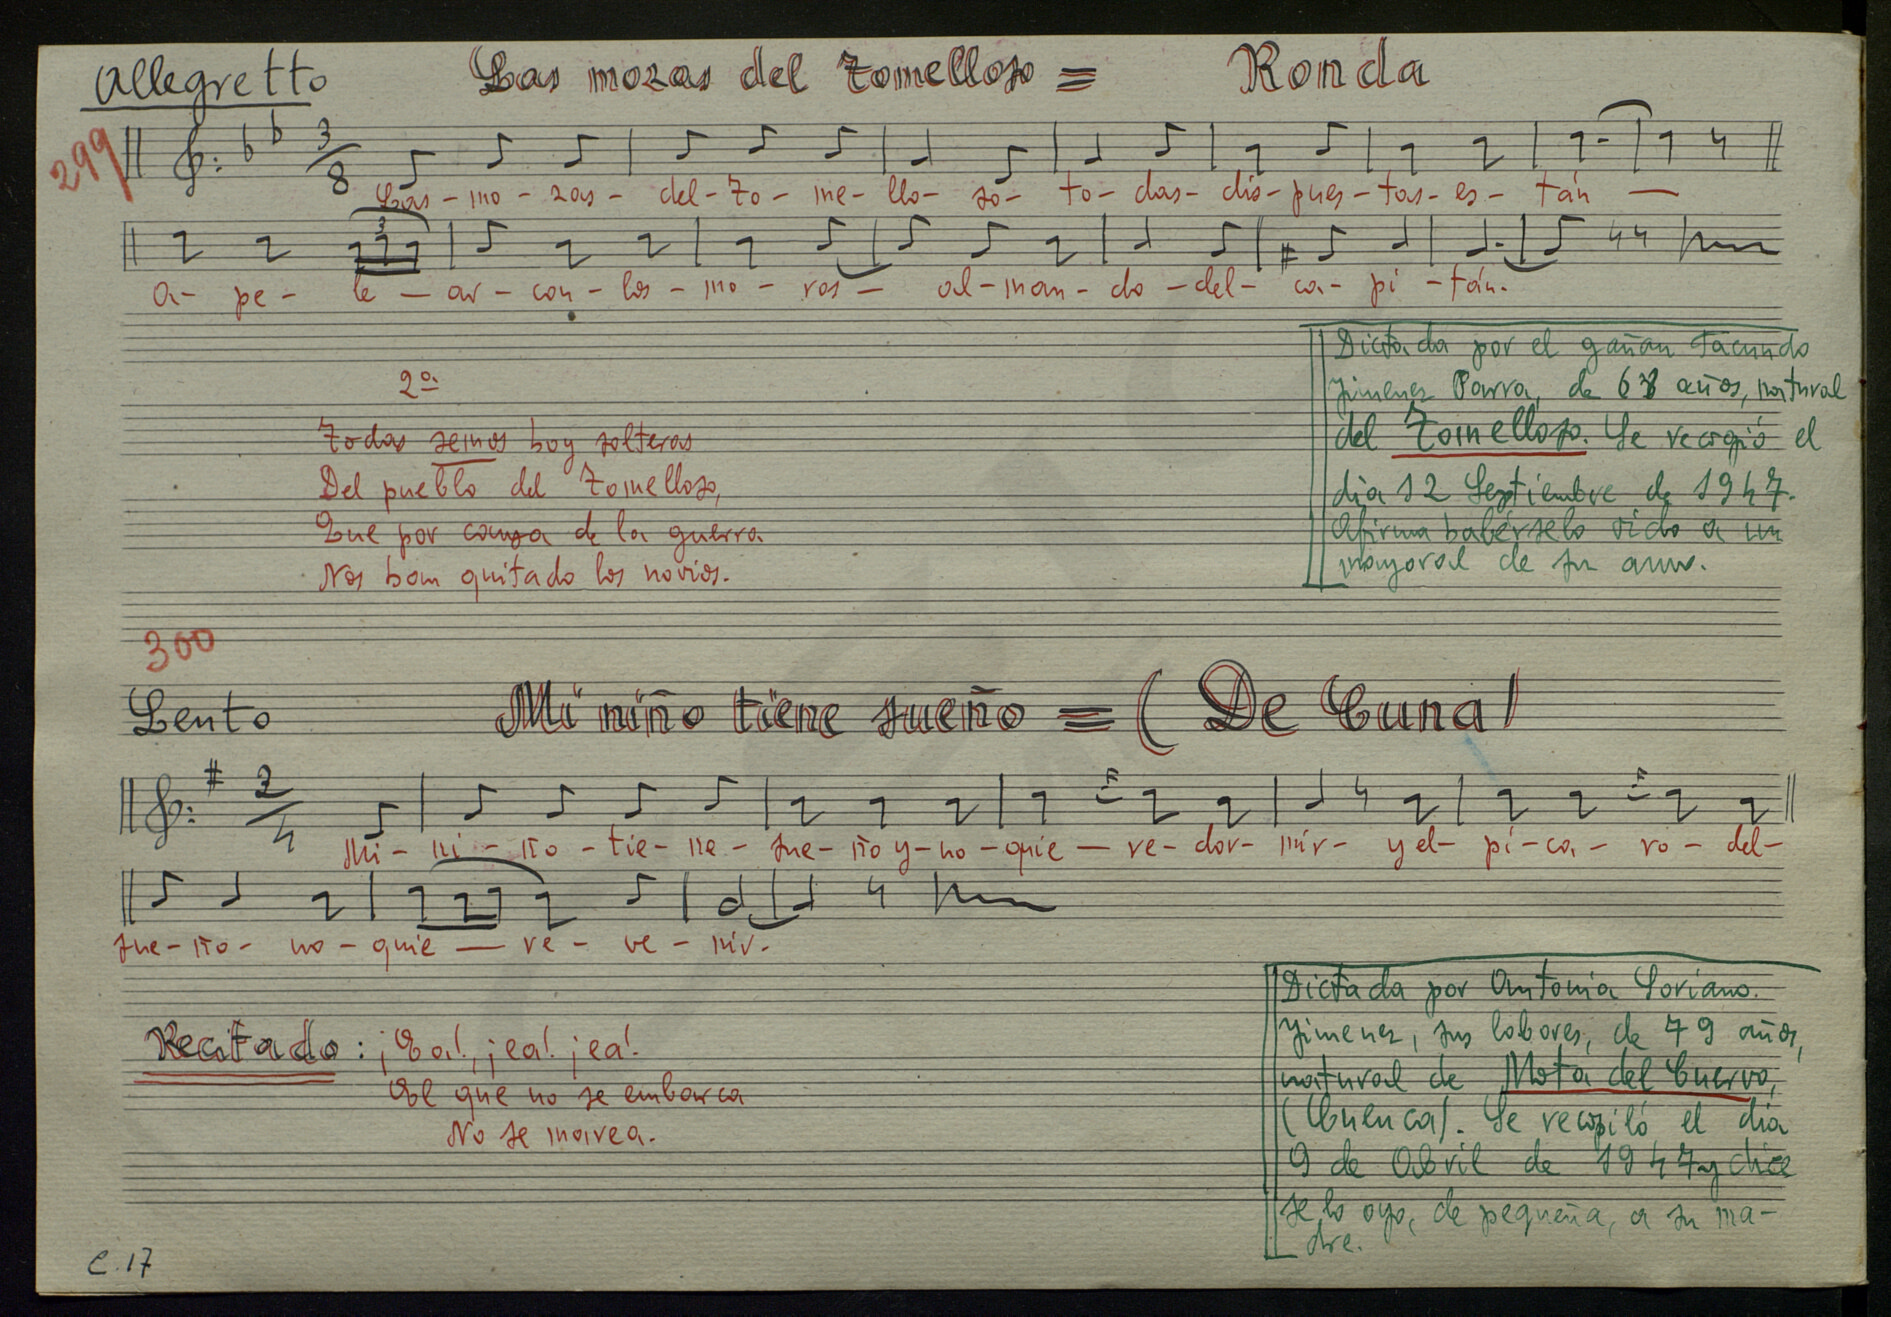 Allegretto Las mozas del Tomelloso = Ronda
299
3/8
Las - mo - zas - del - To - me - llo - so - to - das - dis - pues - tas - es - tán —
3
a - pe - le — ar - con - los - mo - ros — al - man - do - del - ca - pi - tán.
2ª
Todas semos hoy solteras
Del pueblo del Tomelloso,
Que por causa de la guerra
Nos han quitado los novios.
Dictada por el gañan Facundo
Jimenez Parra, de 68 años, natural
del Tomelloso. Se recogió el
dia 12 Septiembre de 1947.
Afirma habérselo oido a un
mayoral de su amo.
300
Lento Mi niño tiene sueño = (De Cuna)
2/4
Mi - ni - ño - tie - ne - sue - ño y - no - quie — re - dor - mir - y el - pi - ca - ro - del -
sue - ño - no - quie — re - ve - nir.
Recitado: ¡Ea!, ¡ea! ¡ea!
El que no se embarca
No se marea.
Dictada por Antonia Soriano
Jimenez, sus labores, de 79 años,
natural de Mota del Cuervo,
(Cuenca). Se recopiló el dia
9 de Abril de 1947 y dice
se lo oyo, de pequeña, a su ma-
dre.
C. 17